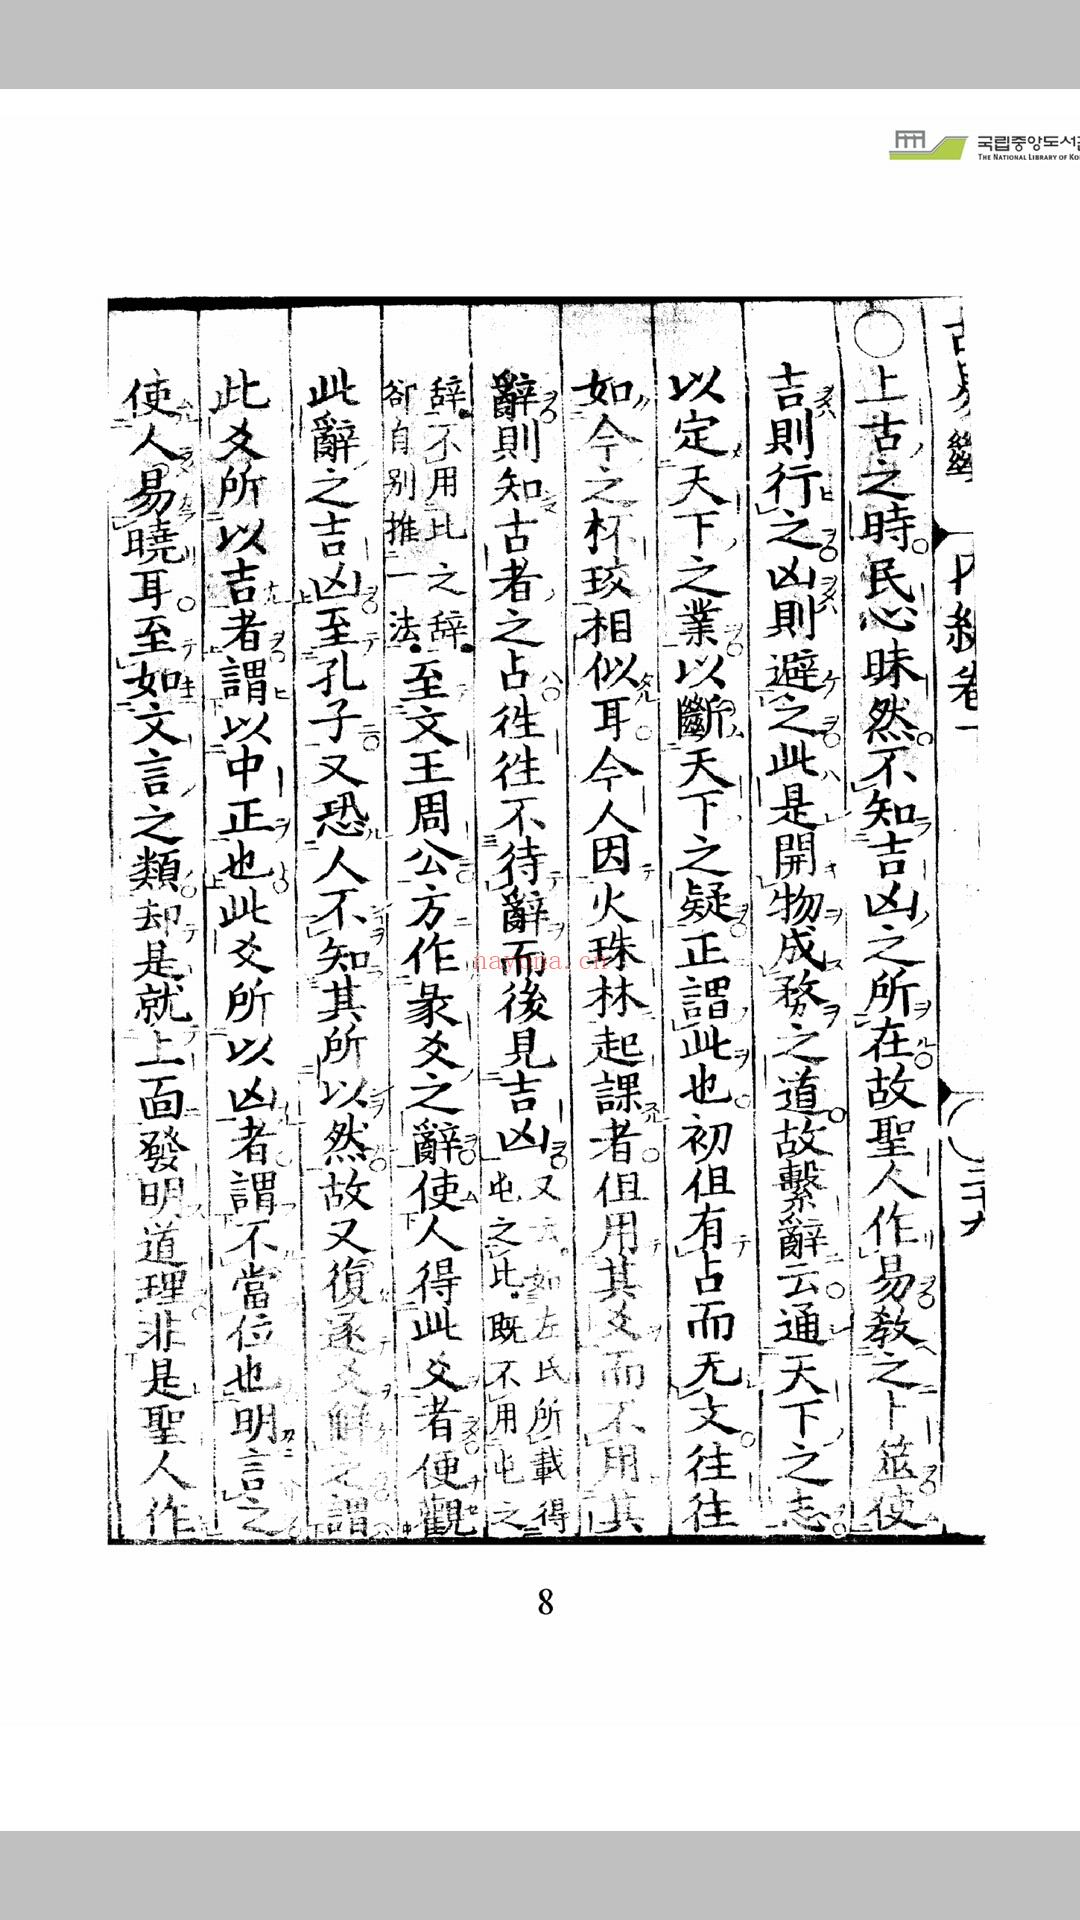 국립중앙도서관
THE NATIONAL LIBRARY OF KO
內 卷一
二十九
○上古之時民心昧然不知吉凶之所在故聖人作易教之卜筮使
吉則行之凶則避之此是開物成務之道故繫辭云通天下之志
以定天下之業以斷天下之疑正謂此也初但有占而无文往往
如今之杯珓相似耳今人因火珠林起課者但用其爻而不用其
辭則知古者之占徃徃不待辭而後見吉凶
又云如左氏所載得
屯之比既不用屯之
辞不用比之辞
卻自別推一法
至文王周公方作彖爻之辭使人得此爻者便觀
此辭之吉凶至孔子又恐人不知其所以然故又復逐爻解之謂
此爻所以吉者謂以中正也此爻所以凶者謂不當位也明言之
使人易曉耳至如文言之類却是就上面發明道理非是聖人作
nayona.cn
8